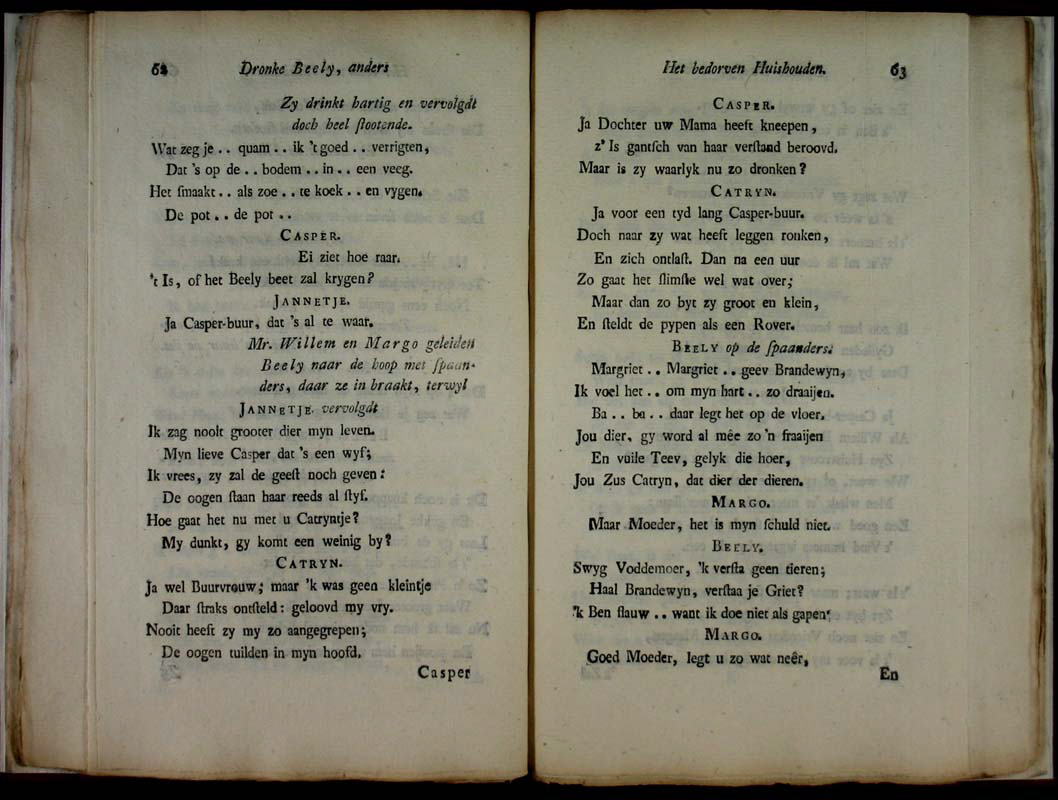 62 Dronke Beely, anders
Zy drinkt hartig en vervolgdt
doch heel ſlootende.
Wat zeg je .. quam .. ik 't goed .. verrigten,
Dat 's op de .. bodem .. in .. een veeg.
Het ſmaakt .. als zoe .. te koek .. en vygen.
De pot .. de pot ..
CASPER.
Ei ziet hoe raar.
't Is, of het Beely beet zal krygen?
JANNETJE.
Ja Casper-buur, dat 's al te waar.
Mr. Willem en Margo geleiden
Beely naar de hoop met ſpaan-
ders, daar ze in braakt, terwyl
JANNETJE. vervolgdt
Ik zag nooit grooter dier myn leven.
Myn lieve Casper dat 's een wyf;
Ik vrees, zy zal de geeſt noch geven:
De oogen ſtaan haar reeds al ſtyf.
Hoe gaat het nu met u Catryntje?
My dunkt, gy komt een weinig by?
CATRYN.
Ja wel Buurvrouw; maar 'k was geen kleintje
Daar ſtraks ontſteld: geloovd my vry.
Nooit heeft zy my zo aangegrepen;
De oogen tuilden in myn hoofd.
Casper
Het bedorven Huishouden. 63
CASPER.
Ja Dochter uw Mama heeft kneepen,
z' Is gantſch van haar verſtand beroovd.
Maar is zy waarlyk nu zo dronken?
CATRYN.
Ja voor een tyd lang Casper-buur.
Doch naar zy wat heeft leggen ronken,
En zich ontlaſt. Dan na een uur
Zo gaat het ſlimſte wel wat over;
Maar dan zo byt zy groot en klein,
En ſteldt de pypen als een Rover.
BEELY op de ſpaanders.
Margriet .. Margriet .. geev Brandewyn,
Ik voel het .. om myn hart .. zo draaijen.
Ba .. ba .. daar legt het op de vloer.
Jou dier, gy word al mêe zo 'n fraaijen
En vuile Teev, gelyk die hoer,
Jou Zus Catryn, dat dier der dieren.
MARGO.
Maar Moeder, het is myn ſchuld niet.
BEELY.
Swyg Voddemoer, 'k verſta geen tieren;
Haal Brandewyn, verſtaa je Griet?
'k Ben flauw .. want ik doe niet als gapen.
MARGO.
Goed Moeder, legt u zo wat neêr,
En